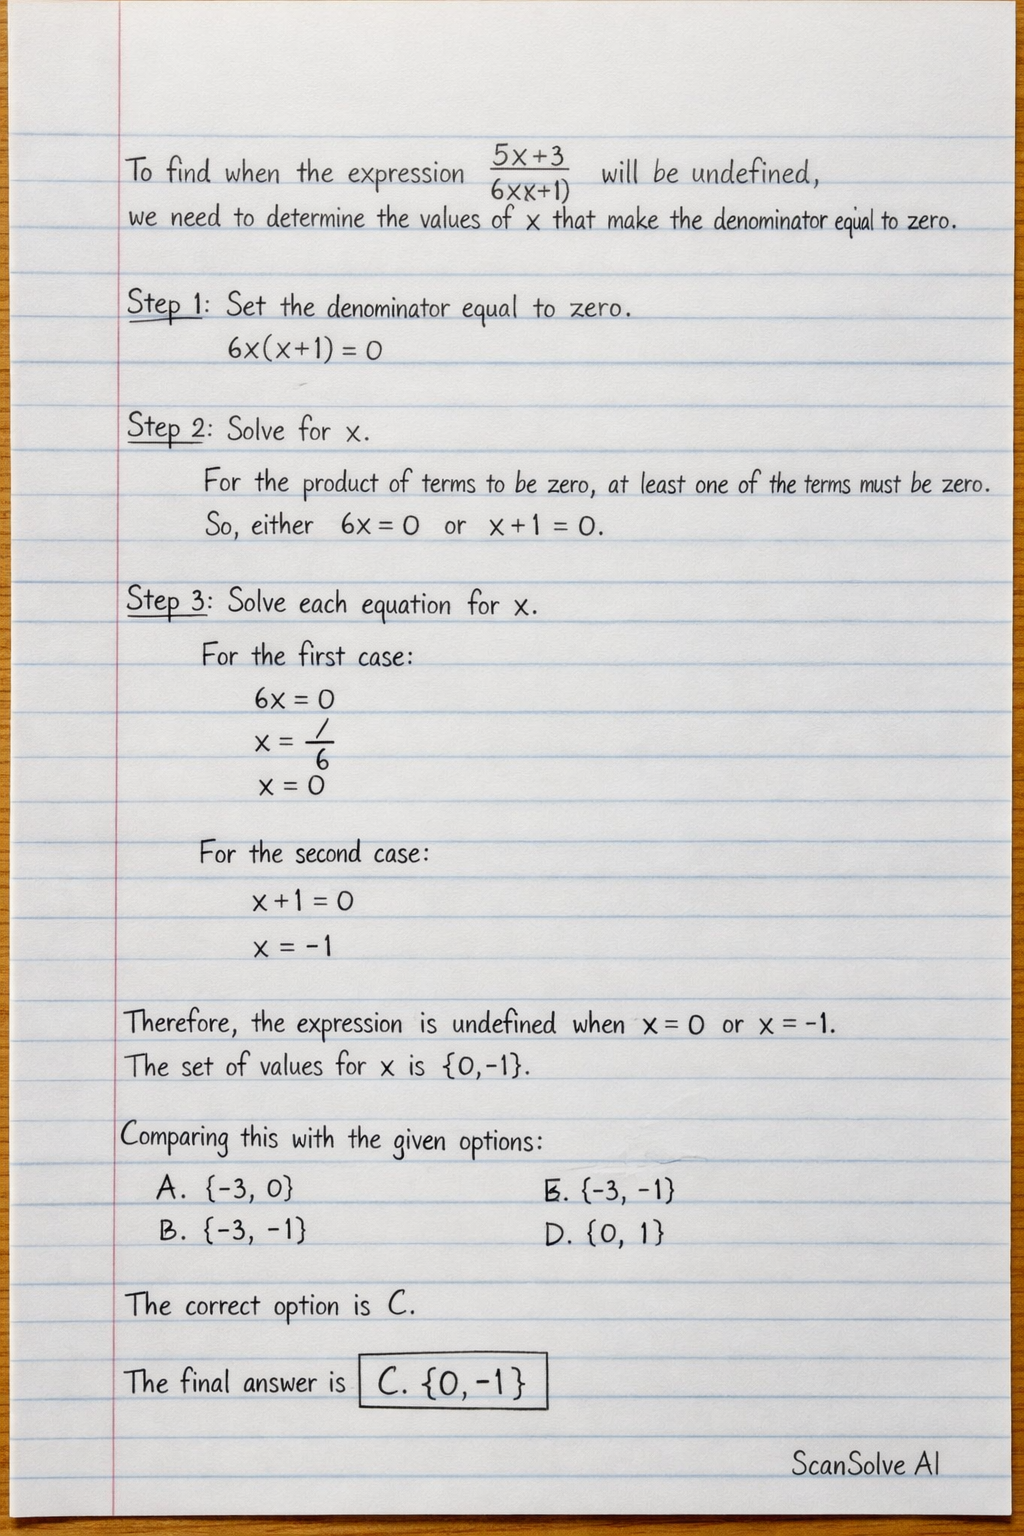 To find when the expression 5x+3 / 6xx+1) will be undefined,
we need to determine the values of x that make the denominator equal to zero.
Step 1: Set the denominator equal to zero.
6x(x+1) = 0
Step 2: Solve for x.
For the product of terms to be zero, at least one of the terms must be zero.
So, either 6x = 0 or x+1 = 0.
Step 3: Solve each equation for x.
For the first case:
6x = 0
x = / / 6
x = 0
For the second case:
x+1 = 0
x = -1
Therefore, the expression is undefined when x = 0 or x = -1.
The set of values for x is {0,-1}.
Comparing this with the given options:
A. {-3, 0}
B. {-3, -1}
{-3, -1}
D. {0, 1}
The correct option is C.
The final answer is C. {0,-1}
ScanSolve AI